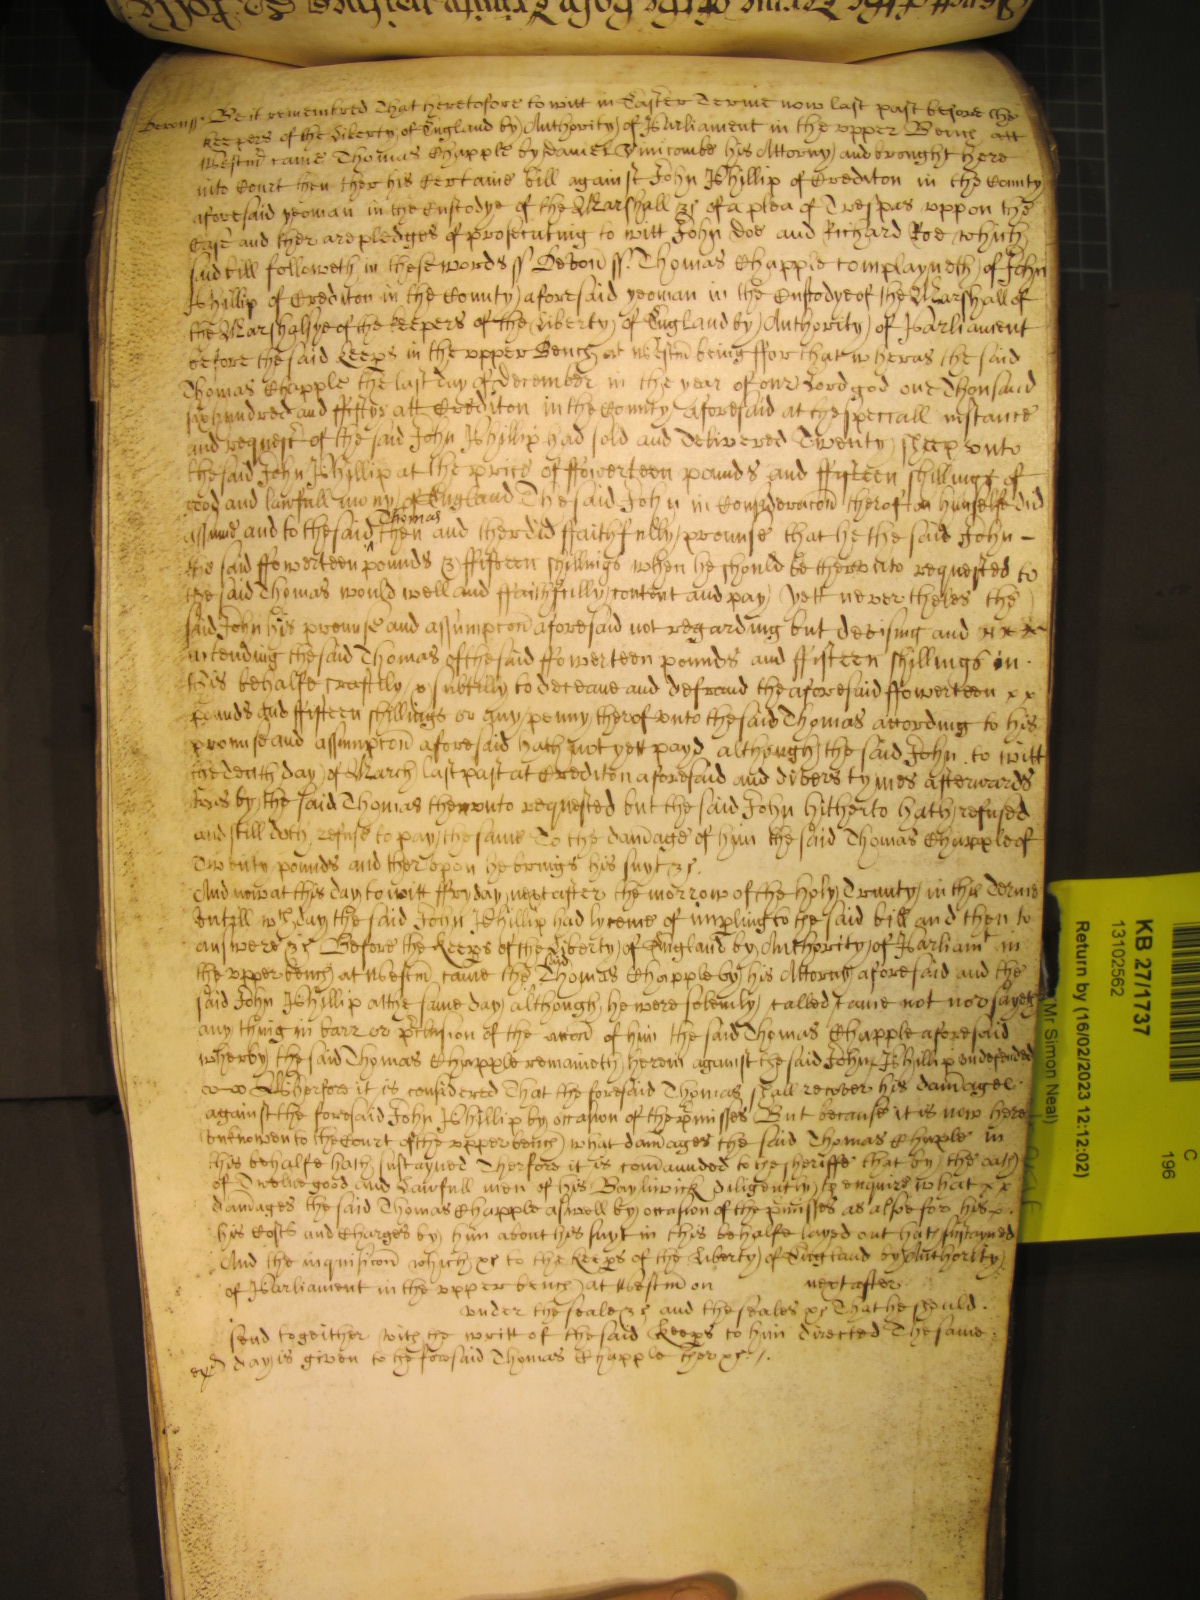 Devon ss. Be it remembred That heretofore to witt in Easter Terme now last past before the
Keepers of the Liberty of England by Authority of Parliament in the upper Bench att
Westmr came Thomas Chapple by Daniel his Attorny and brought here
into Court then ther his Certaine bill against John Phillip of Crediton in the County
aforesaid yeoman in the Custodye of the Marshall &c of a plea of Trespas uppon the
Case and ther are pledges of prosecuting to witt John Doe and Richard Roe which
said bill followeth in these words ss Devon ss. Thomas Chapple complayneth of John
Phillip of Crediton in the County aforesaid yeoman in the Custodye of the Marshall of
the Marshalsye of the Keepers of the Liberty of England by Authority of Parliament
before the said Keeps in the upper Bench at Westm being ffor that wheras the said
Thomas Chapple the last day of December in the year of our Lord god one Thousand
six hundred and ffiftye att Crediton in the County aforesaid at the speciall instance
and request of the said John Phillip had sold and delivered Twenty sheep unto
the said John Phillip at the price of ffowerteen pounds and ffifteen shillings of
good and lawfull mony of England The said John in Consideracon therof on himselfe did
assume and to the said Thomas then and ther did ffaithfully promise that he the said John -
the said ffowerteen pounds & ffifteen shillings when he should be therunto requested to
the said Thomas would well and ffaithfully content and pay yett never theles the
said John his promise and assumpcon aforesaid not regarding but devising and x x x
intending the said Thomas of the said ffowerteen pounds and ffifteen shillings in .
this behalfe craftily & subtilly to deceave and defraud the aforesaid ffowerteen x x
pounds and ffifteen shillings or any penny therof unto the said Thomas according to his
promise and assumpcon aforesaid hath not yet payd although the said John to witt
the tenth day of March last past at Crediton aforesaid and divers tymes afterwards
was by the said Thomas therunto requested but the said John hitherto hath refused
and still doth refuse to pay the same To the damage of him the said Thomas Chapple of
Twenty pounds and therupon he brings his suyt &c.
And now at this day to witt ffryday next after the morrow of the holy Trinity in this Terme
untill wch day the said John Phillip had lycence of impling to the said bill and then to
answere &c Before the Keeps of the Liberty of England by Authority of Parliamt in
the upper bench at Westm came the said Thomas Chapple by his Attorny aforesaid and the
said John Phillip at the same day although he were solemly called came not nor sayeth
any thing in barr or pclusion of the accon of him the said Thomas Chapple aforesaid
wherby the said Thomas Chapple remaineth herein against the said John Phillip undefended
Wherfore it is considered That the foresaid Thomas shall recover his damages
against the foresaid John Phillip by occasion of the pmisses But because it is now here
unknowen to the Court of the upper bench what damages the said Thomas Chapple in
this behalfe hath sustayned Therfore it is commaunded to the sheriffe that by the oath
of Twelve good and Lawfull men of his Baylwick diligently he enquire what x x
damages the said Thomas Chapple aswell by occasion of the pmisses as also for his x.
his Costs and Charges by him about his suyt in this behalfe layed out hath sustayned
And the inquisicon which &c to the Keeps of the Liberty of England by Authority
of Parliament in the upper bench at Westm on next after
under the seale &c and the seales &c That he should .
send togeither with the writt of the said Keeps to him directed The same
day is given to the foresaid Thomas Chapple ther &c.
KB 27/1737
13102562
Return by (16/02/2023 12:12:02)
Mr Simon Neal)
C
196